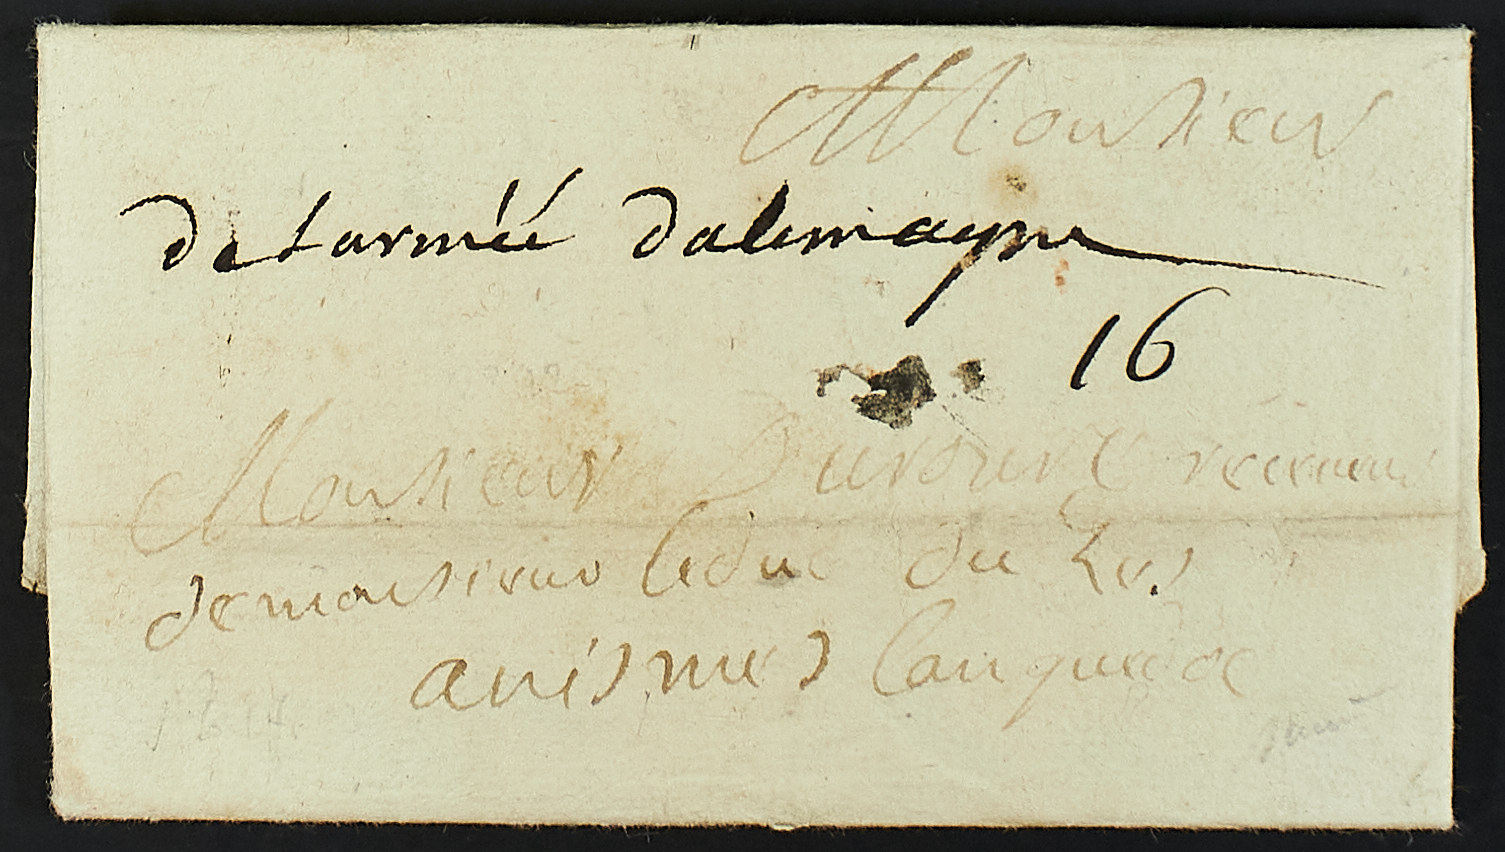 Monsieur
de larmée dalemagne
16
Monsieur
demonsieur leduc du
anismes Languedoc